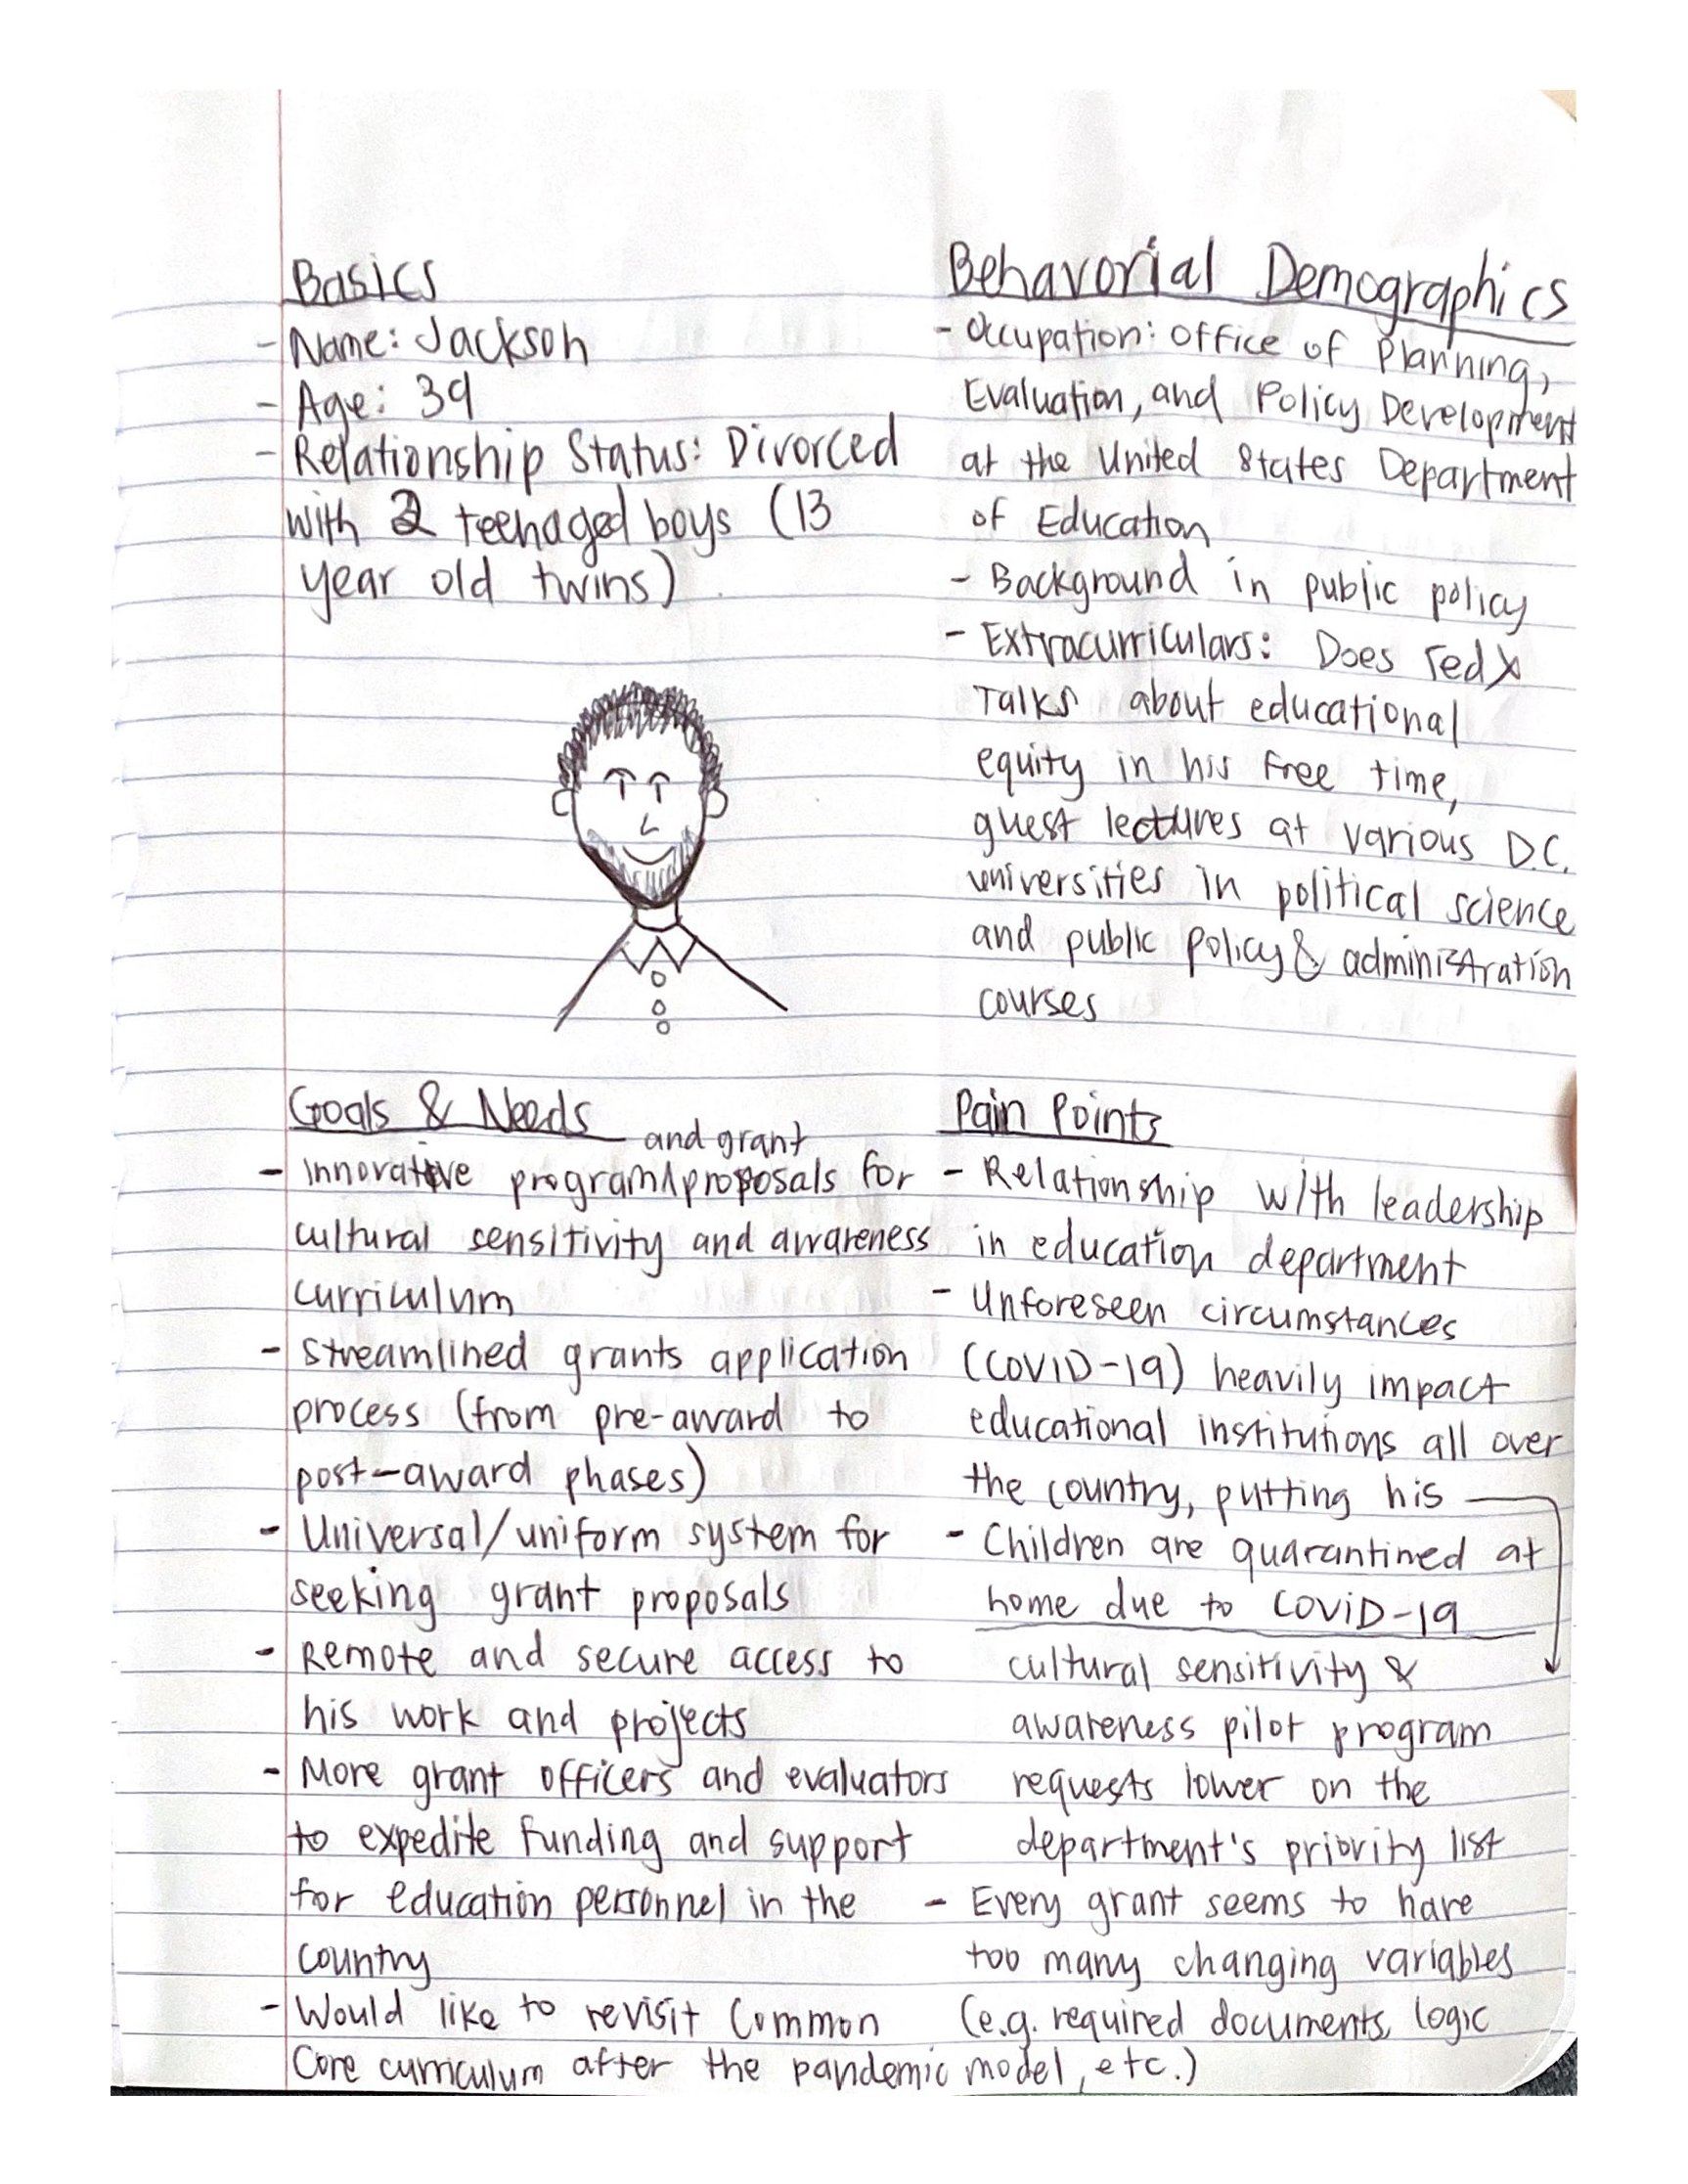 Basics
- Name: Jackson
- Age: 39
- Relationship Status: Divorced
with 2 teenaged boys (13
year old twins)
Behavorial Demographics
- Occupation: Office of Planning,
Evaluation, and Policy Development
at the United States Department
of Education
- Background in public policy
- Extracurriculars: Does TedX
Talks about educational
equity in his free time,
guest lectures at various D.C.
universities in political science
and public policy & administration
courses
Goals & Needs
and grant
- innovative program^proposals for
cultural sensitivity and awareness
curriculum
- streamlined grants application
process (from pre-award to
post-award phases)
- Universal/uniform system for
seeking grant proposals
- Remote and secure access to
his work and projects
- More grant officers and evaluators
to expedite funding and support
for education personnel in the
country
- Would like to revisit Common
Core curriculum after the pandemic
Pain Points
- Relationship with leadership
in education department
- Unforeseen circumstances
(COVID-19) heavily impact
educational institutions all over
the country, putting his
- Children are quarantined at
home due to COVID-19
cultural sensitivity &
awareness pilot program
requests lower on the
department's priority list
- Every grant seems to have
too many changing variables
(e.g. required documents, logic
model, etc.)